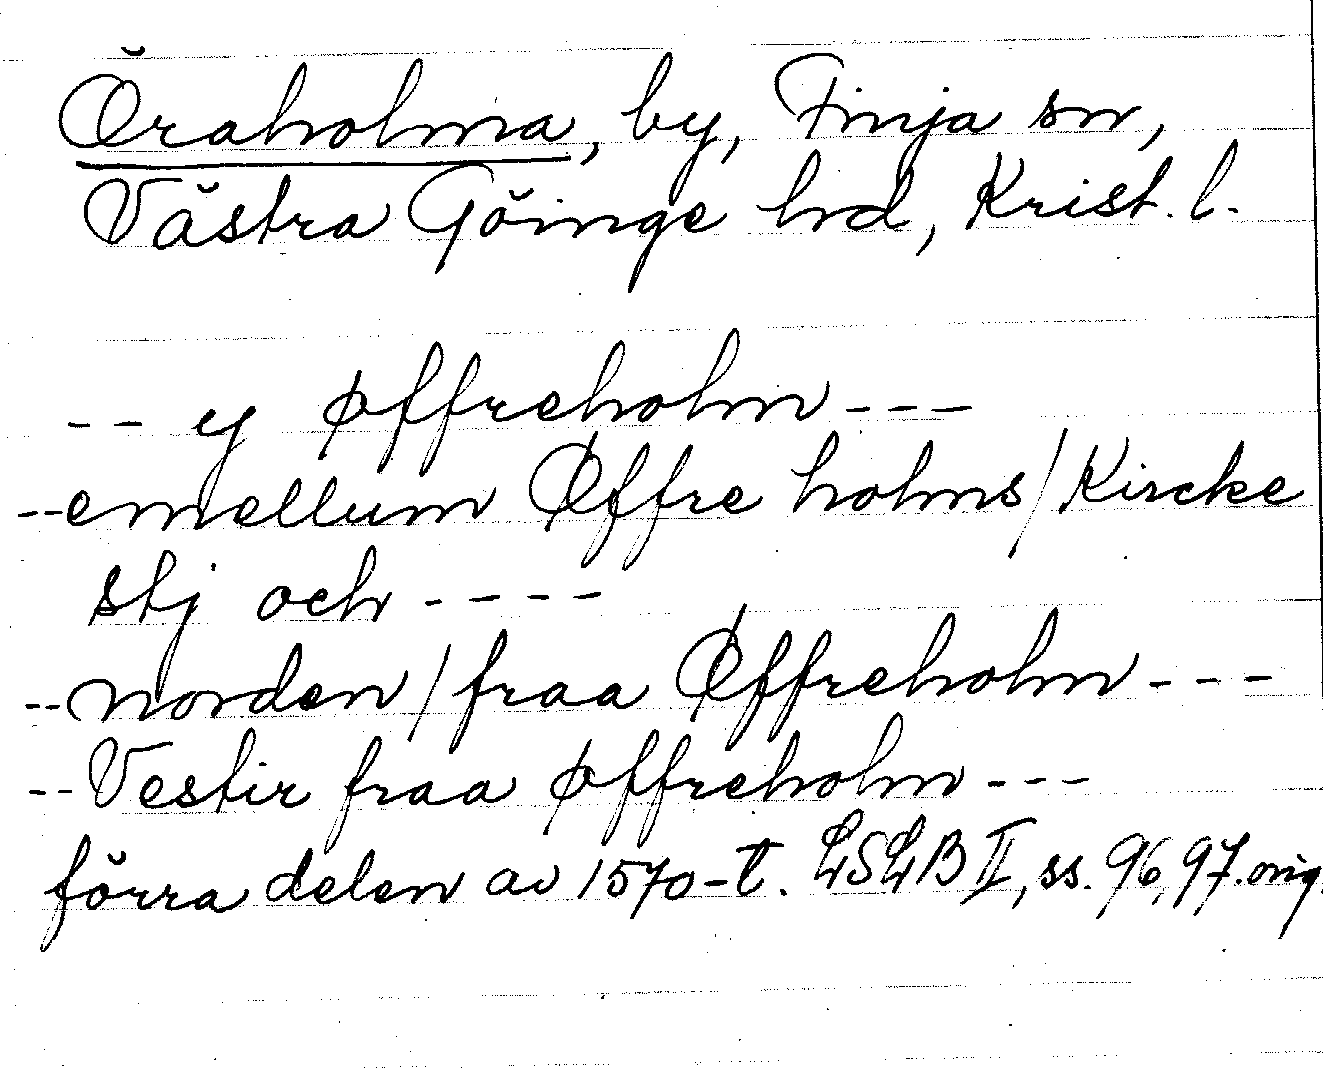 Öraholma, by, Finja sn,
Västra Göinge hd, Krist. l.
-- ij øffreholm ---
-- emellum Øffre holms / Kircke
stj och ----
-- norden / fraa Øffreholm ---
-- Vestir fraa øffreholm ---
förra delen av 1570-t. LSLB II, ss. 96, 97. orig.